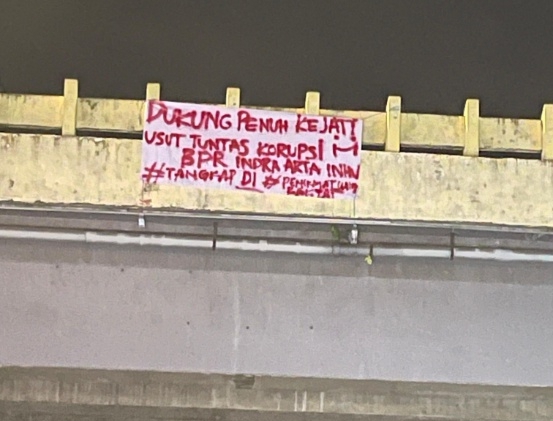 DUKUNG PENUH KEJATI
USUT TUNTAS KORUPSI !!!
BPR INDRA ARTA INHU
#TANGKAP DI #PENIKMAT UANG
RAKYAT